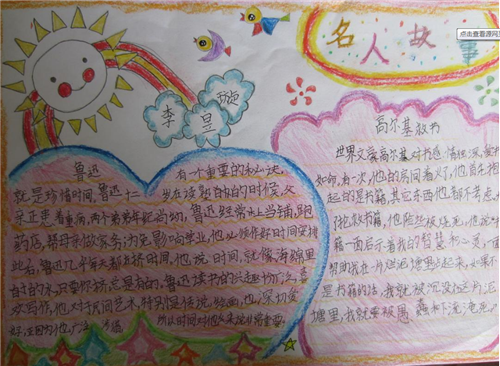 点击查看源网
名人故
李昱璇
鲁迅
有一个重要的秘诀，
就是珍惜时间。鲁迅十二岁在读私塾的时候，父
亲正患着重病，两个弟弟年纪尚幼，鲁迅经常上当铺，跑
药店，帮母亲做家务；为免影响学业，他必须作好时间安排
此后，鲁迅几乎每天都在挤时间。他说：时间，就像海绵里
的水，只要你挤，总是有的。鲁迅读书的兴趣十分广泛，喜
欢写作，他对于民间艺术，特别是传说、绘画，也深切爱
好；正因为他广泛涉猎
所以时间对他来说非常重要。
高尔基救书
世界文豪高尔基对书感情很深，爱书
如命，有一次，他的房间着火了，他首先抱
起的是书籍，其它东西他都不考虑，
了抢救书籍，他险些被烧死。他说：书
籍一面启示着我的智慧和心灵，面
帮助我在一片烂泥塘里站起来，如果不
是书籍的话，我就被沉没在这片泥
塘里，我就要被愚蠢和下流淹死。